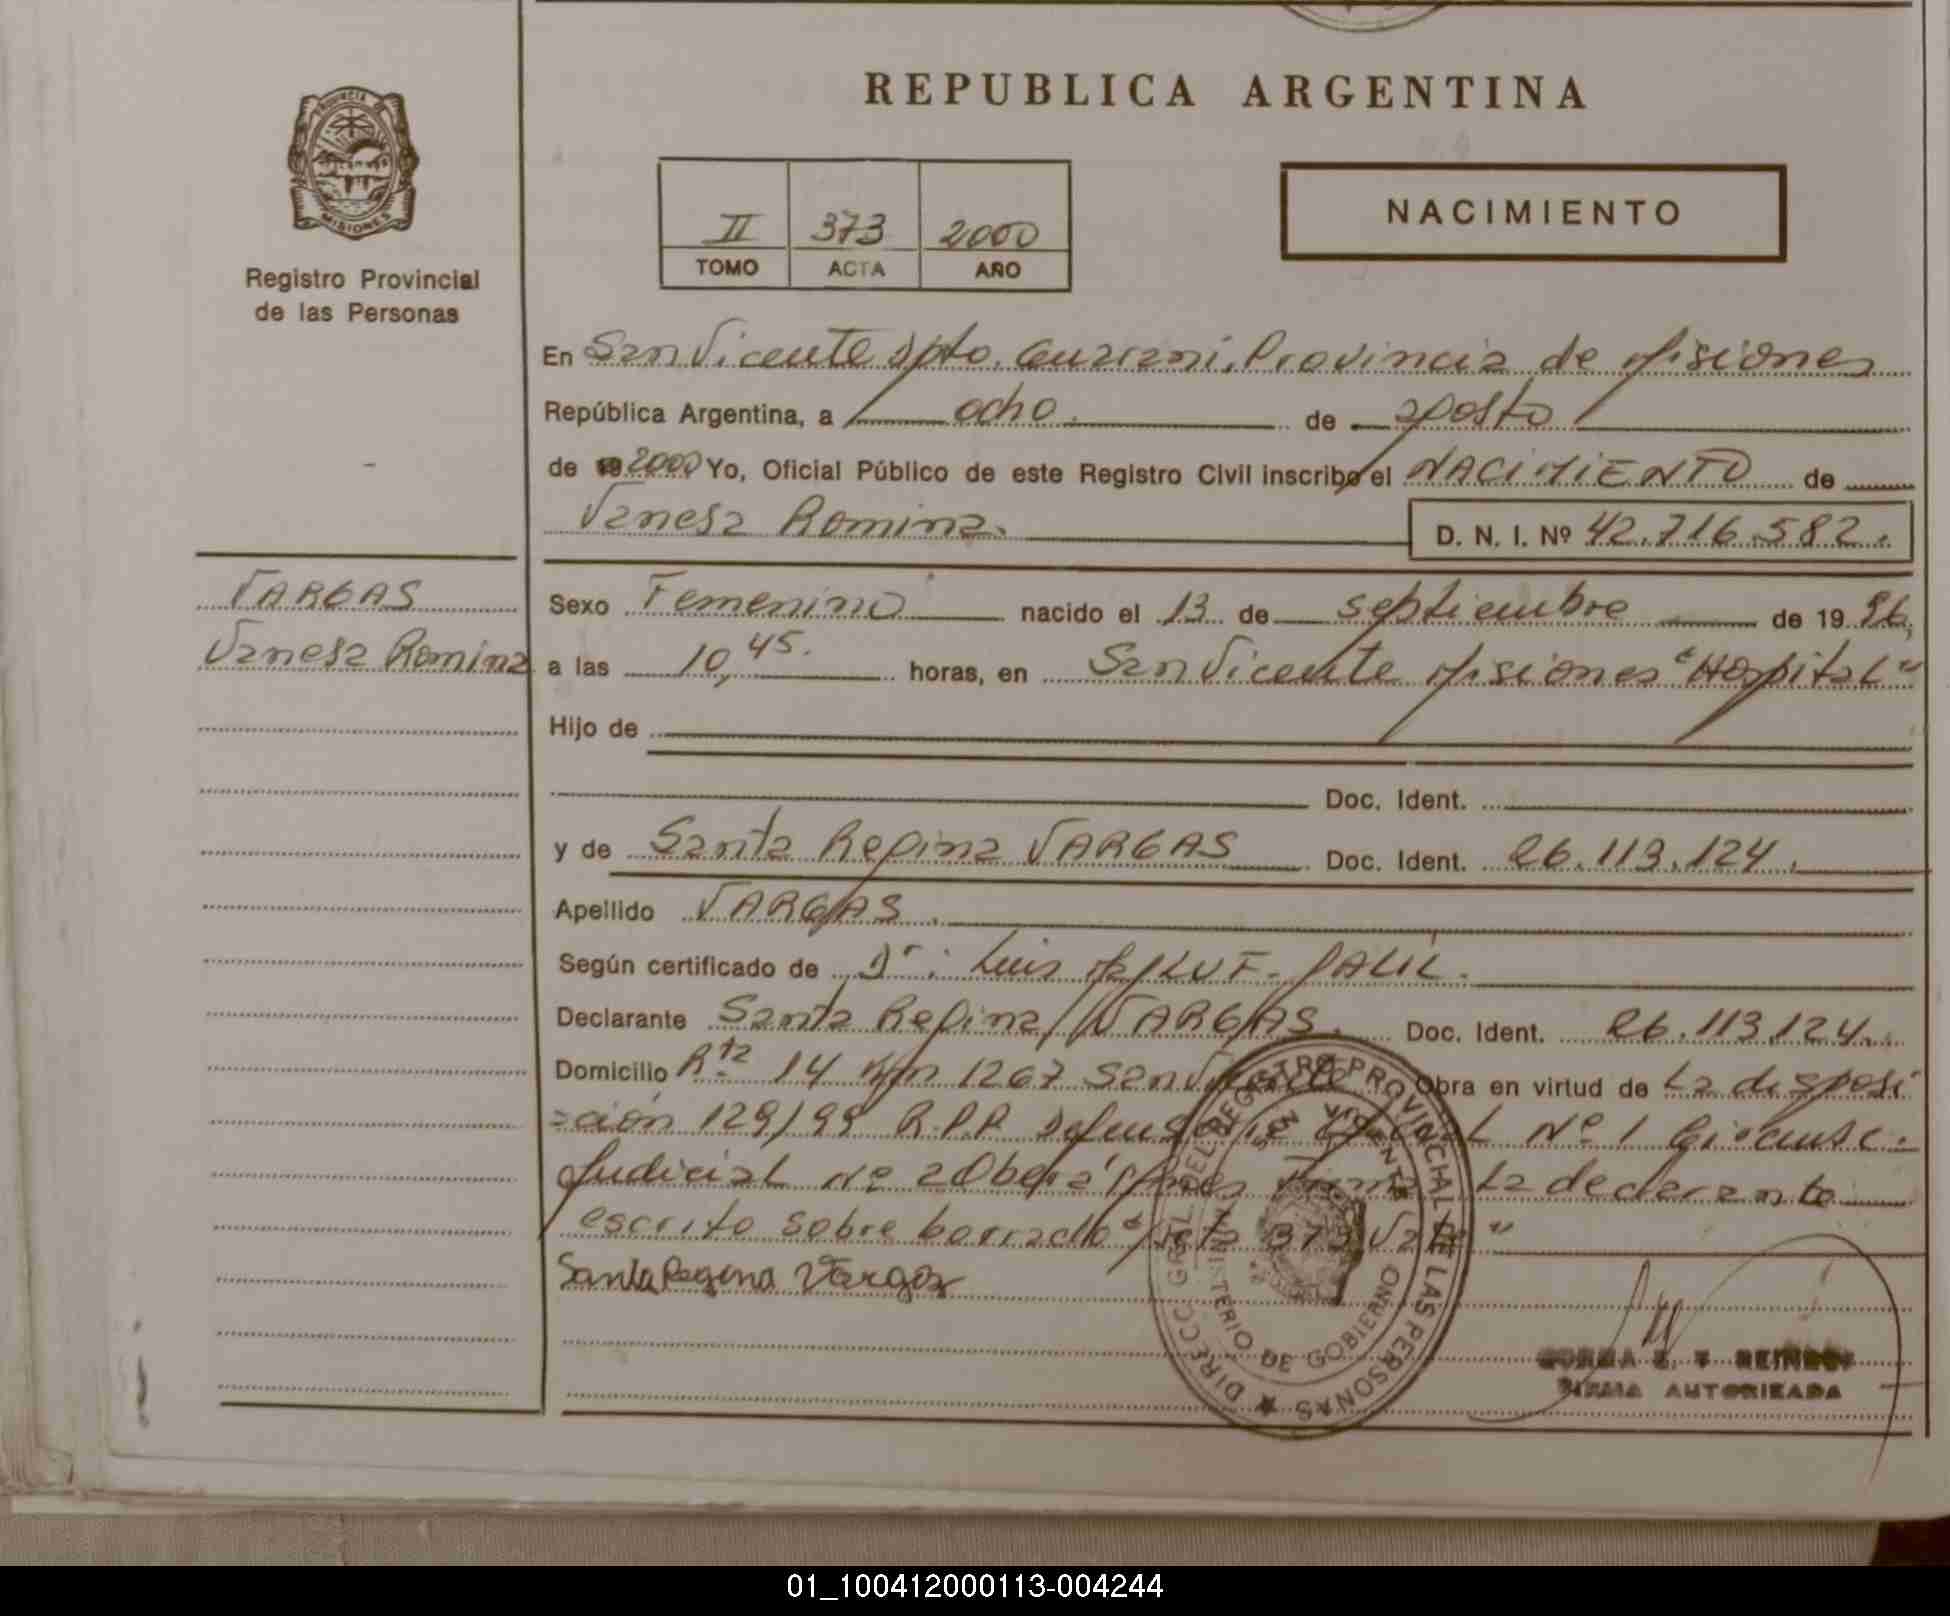 REPUBLICA ARGENTINA
PROVINCIA DE
MISIONES
Registro Provincial
de las Personas
II 373 2000
TOMO ACTA AÑO
NACIMIENTO
En San Vicente Dpto. Guarani, Provincia de Misiones
República Argentina, a ocho. de agosto
de 19 2000 Yo, Oficial Público de este Registro Civil inscribo el NACIMIENTO de
Vanesa Romina.
D. N. I. Nº 42.716.582.
VARGAS
Vanesa Romina
Sexo Femenino nacido el 13 de septiembre de 19 96,
a las 10,45. horas, en San Vicente Misiones "Hospital"
Hijo de
Doc. Ident.
y de Santa Regina VARGAS Doc. Ident. 26.113.124.
Apellido VARGAS.
Según certificado de Dr: Luis
Declarante Santa Regina VARGAS. Doc. Ident. 26.113.124.
Domicilio Rta 14 Km 1267 San Vicente Obra en virtud de La disposi
=ción 129/99 R.P.P. Nº 1 Circunsc.
Judicial Nº 2 Oberá La declarante
escrito sobre borrado "Acta 373 "
Santa Regina Vargas
DIRECC. GRAL. DEL REGISTRO PROVINCIAL DE LAS PERSONAS
SAN VICENTE
MINISTERIO DE GOBIERNO
FIRMA AUTORIZADA
01_100412000113-004244